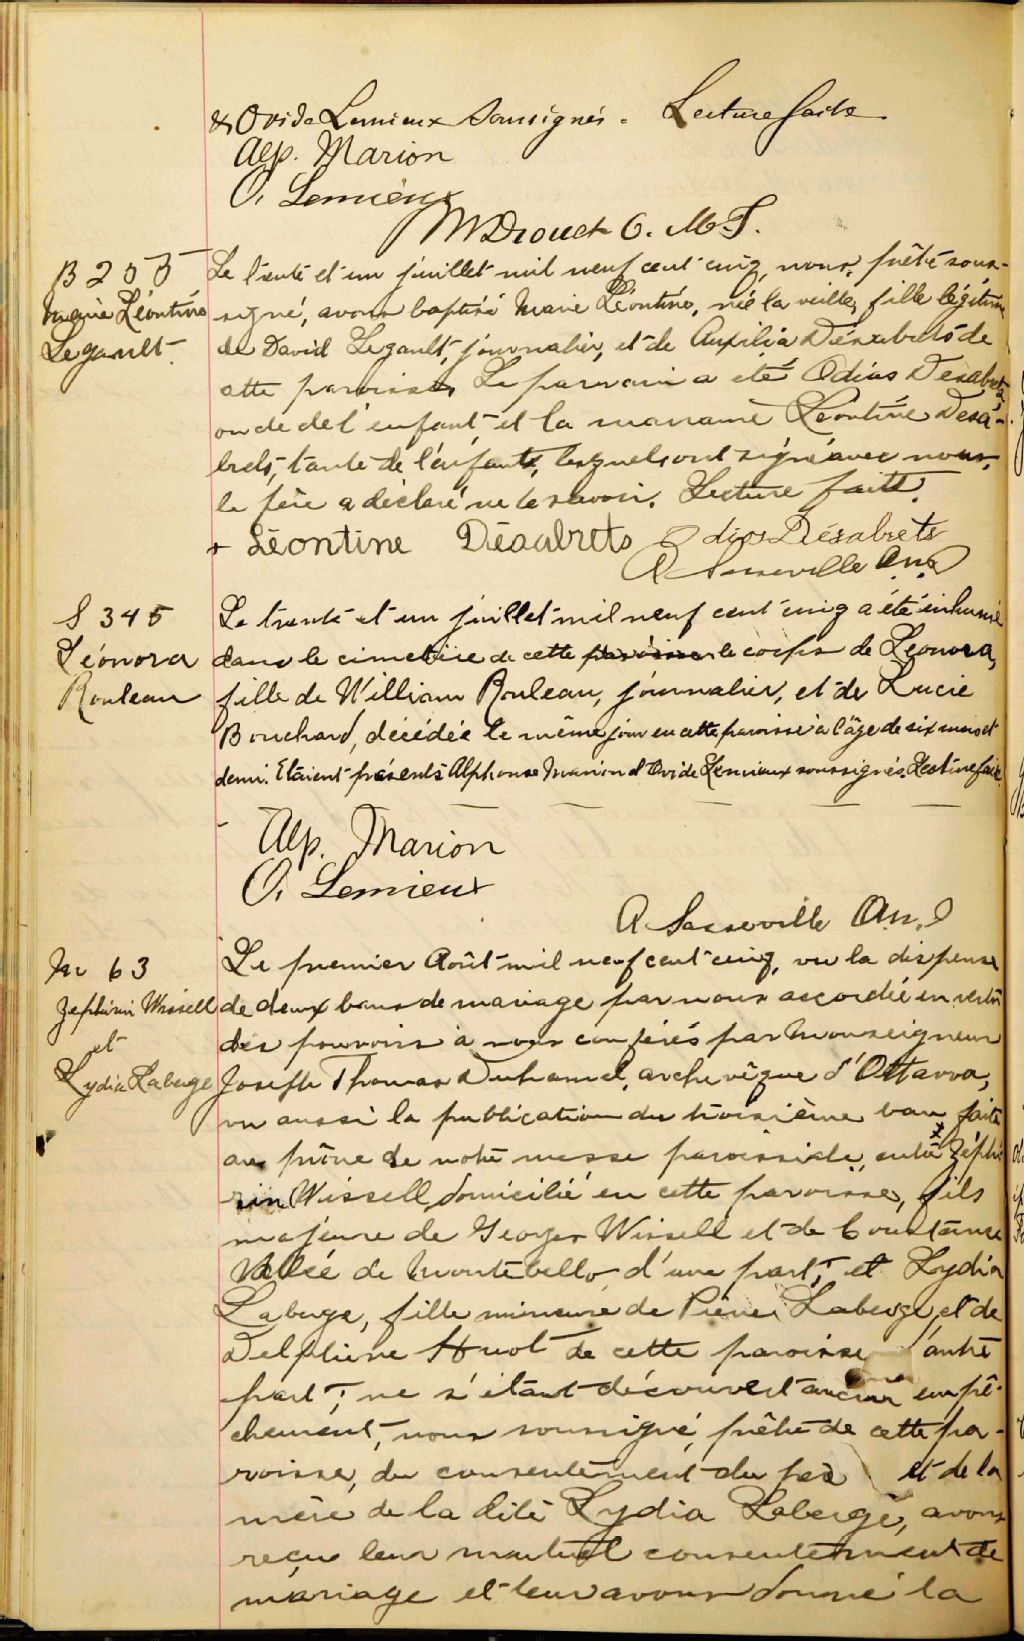 & Ovide Lemieux soussignés. Lecture faite
Alp. Marion
O. Lemieux
M Drouet O. M. I.
B 205
Marie Léontine
Legault
Le trente et un juillet mil neuf cent cinq, nous, prêtre sous-
signé, avons baptisé Marie Léontine, née la veille, fille légitime
de David Legault, journalier, et de Auxilia Désabrets de
cette paroisse. Le parrain a été Odias Desabrets
oncle de l'enfant et la marraine Léontine Desa-
brets, tante de l'enfant, lesquels ont signé avec nous,
le père a déclaré ne le savoir. Lecture faite.
+ Léontine Désabrets Odias Désabrets
A Sasseville O.M.I
S 345
Léonora
Rouleau
Le trente et un juillet mil neuf cent cinq a été inhumé
dans le cimetière de cette paroisse le corps de Léonora,
fille de William Rouleau, journalier, et de Lucie
Bouchard, décédée le même jour en cette paroisse à l'âge de six mois et
demi. Etaient présents Alphonse Marion et Ovide Lemieux soussignés. Lecture faite
Alp. Marion
O. Lemieux
A Sasseville O.M.I
M 63
Zephirin Wissell
et
Lydia Laberge
Le premier Août mil neuf cent cinq, vu la dispense
de deux bans de mariage par nous accordée en vertu
des pouvoirs à nous conférés par Monseigneur
Joseph Thomas Duhamel, archevêque d'Ottawa,
vu aussi la publication du troisième ban faite
au prône de notre messe paroissiale, entre Zéphi
rin Wissell domicilié en cette paroisse, fils
majeure de Georges Wissell et de Constance
Vallée de Montebello d'une part; et Lydia
Laberge, fille mineure de Pierre Laberge et de
Delphine Huot de cette paroisse autre
part; ne s'étant découvert aucun empê-
chement, nous soussigné, prêtre de cette pa-
roisse, du consentement du père et de la
mère de la dite Lydia Laberge, avons
reçu leur mutuel consentement de
mariage et leur avons donné la